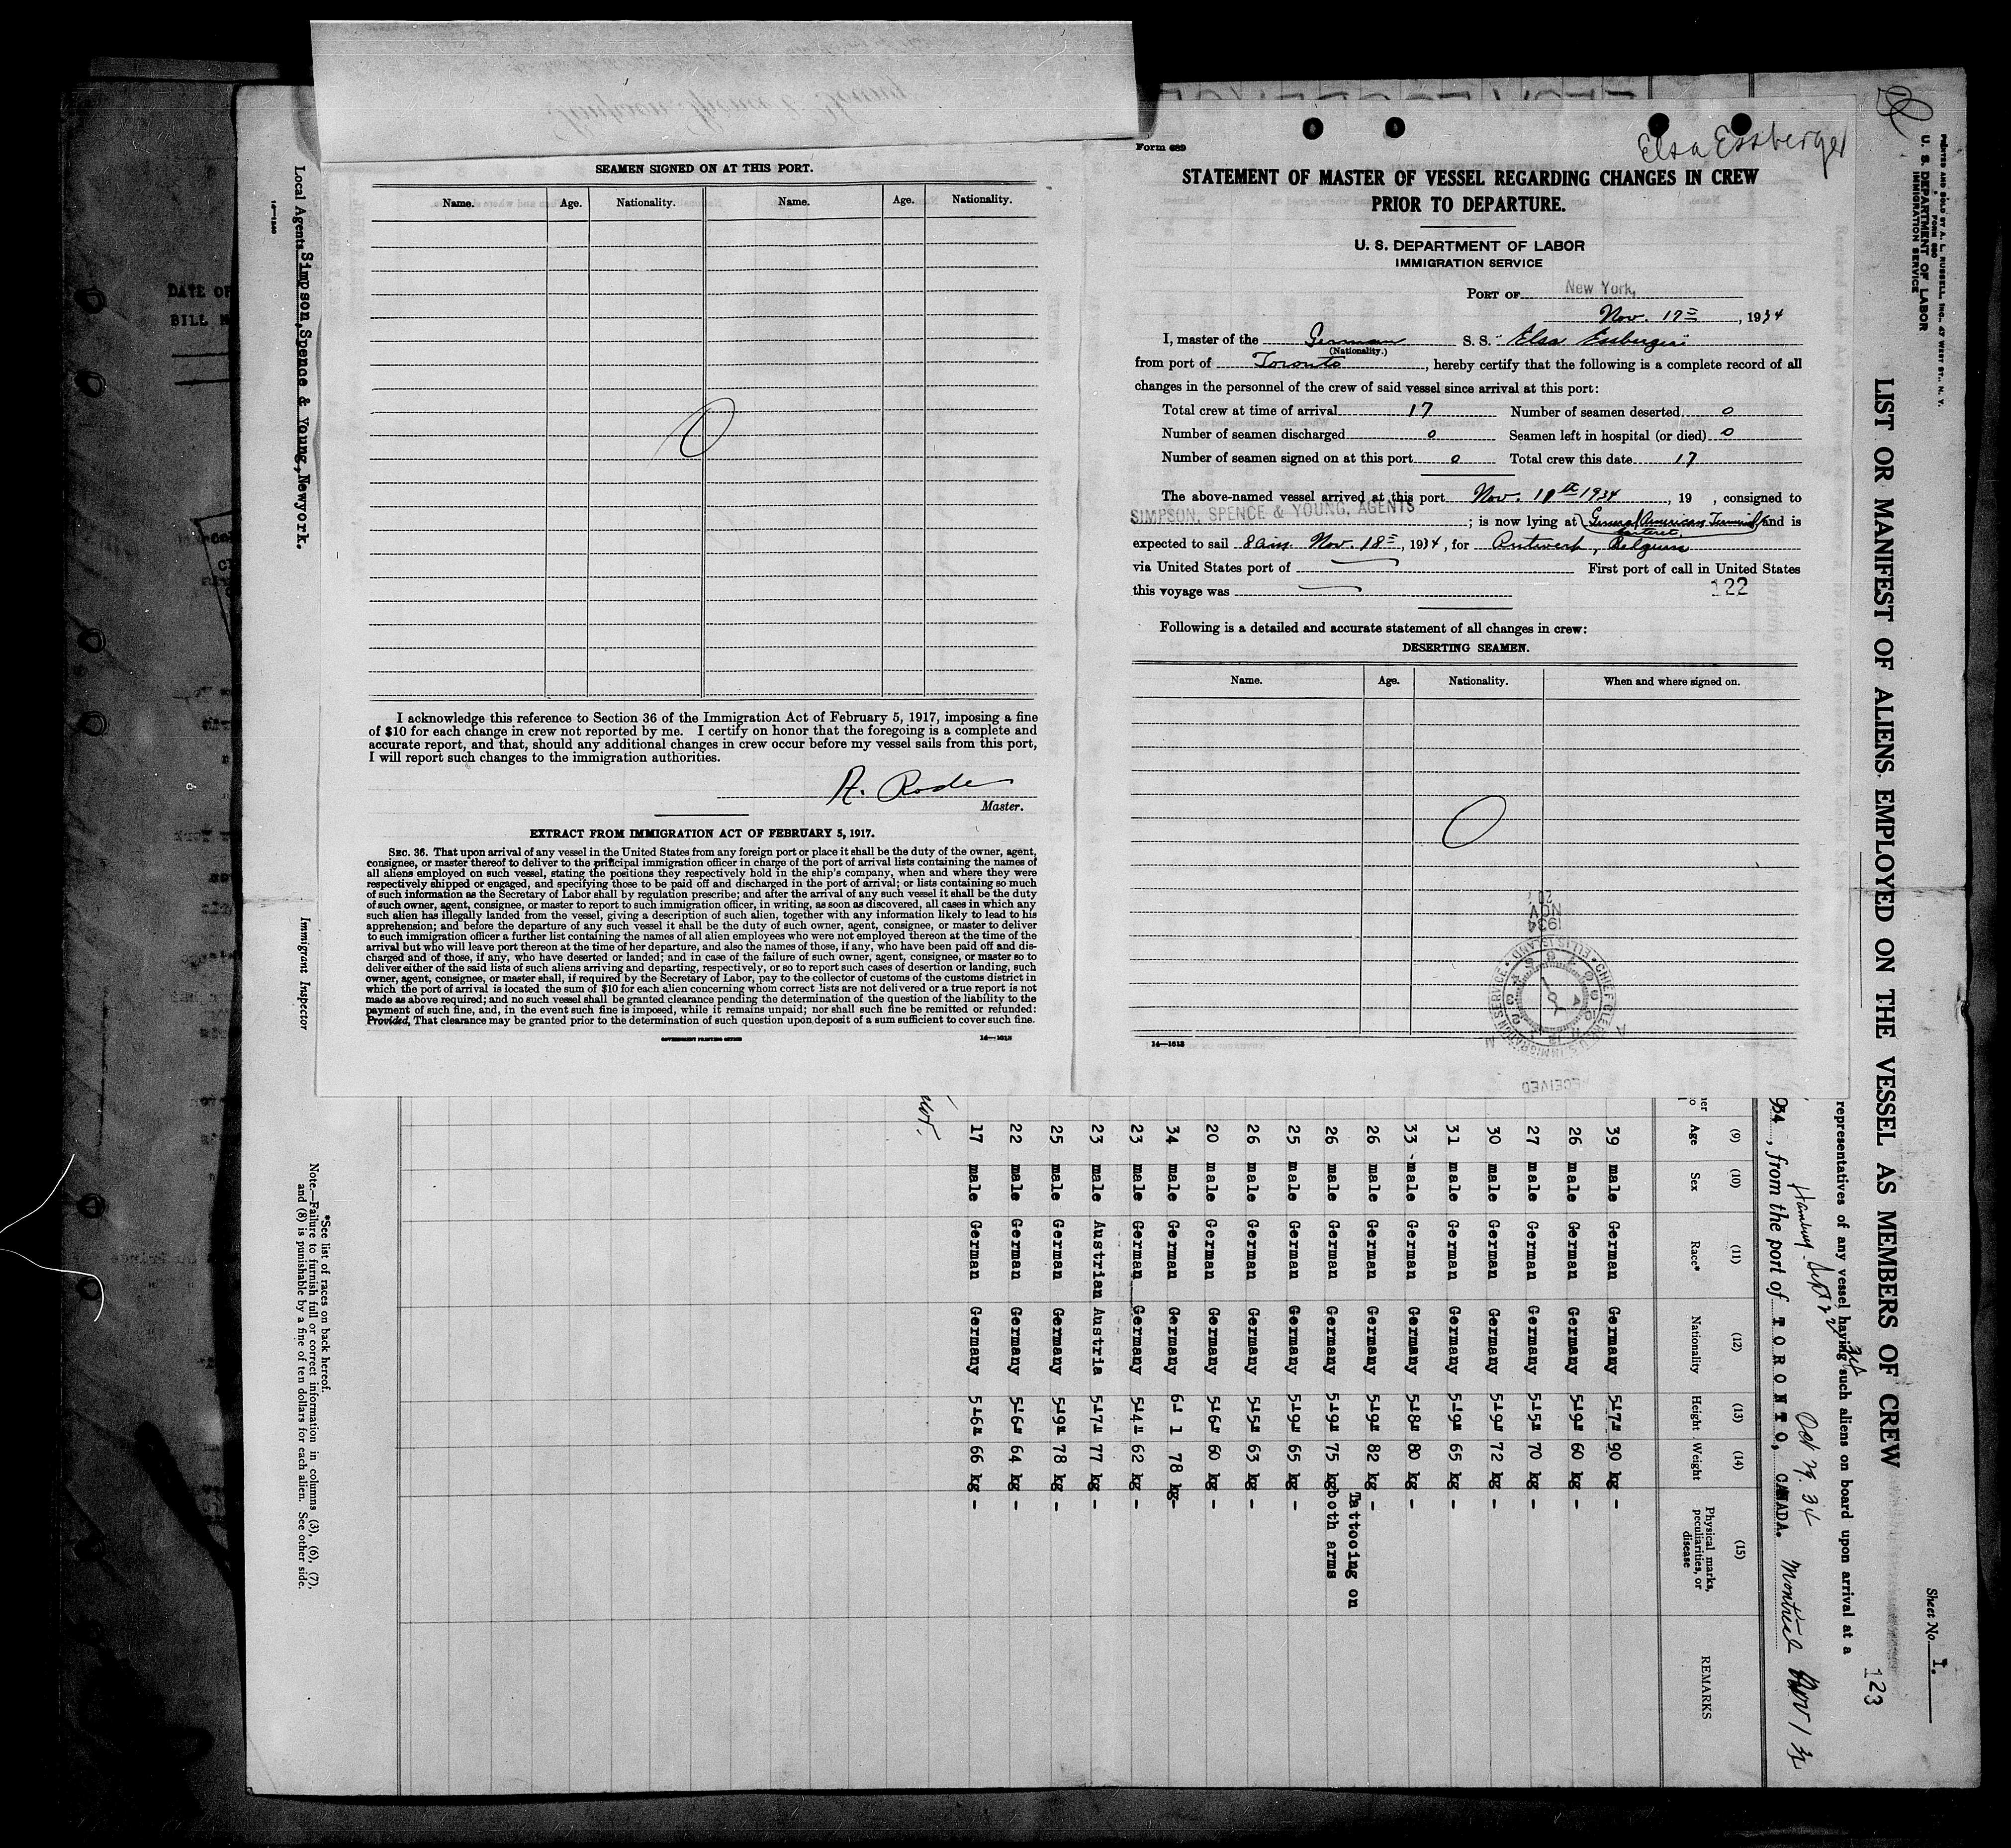 SEAMEN SIGNED ON AT THIS PORT.
Name. Age. Nationality. Name. Age. Nationality.
0
I acknowledge this reference to Section 36 of the Immigration Act of February 5, 1917, imposing a fine
of $10 for each change in crew not reported by me. I certify on honor that the foregoing is a complete and
accurate report, and that, should any additional changes in crew occur before my vessel sails from this port,
I will report such changes to the immigration authorities.
A. Rode
Master.
EXTRACT FROM IMMIGRATION ACT OF FEBRUARY 5, 1917.
SEC. 36. That upon arrival of any vessel in the United States from any foreign port or place it shall be the duty of the owner, agent,
consignee, or master thereof to deliver to the principal immigration officer in charge of the port of arrival lists containing the names of
all aliens employed on such vessel, stating the positions they respectively hold in the ship's company, when and where they were
respectively shipped or engaged, and specifying those to be paid off and discharged in the port of arrival; or lists containing so much
of such information as the Secretary of Labor shall by regulation prescribe; and after the arrival of any such vessel it shall be the duty
of such owner, agent, consignee, or master to report to such immigration officer, in writing, as soon as discovered, all cases in which any
such alien has illegally landed from the vessel, giving a description of such alien, together with any information likely to lead to his
apprehension; and before the departure of any such vessel it shall be the duty of such owner, agent, consignee, or master to deliver
to such immigration officer a further list containing the names of all alien employees who were not employed thereon at the time of the
arrival but who will leave port thereon at the time of her departure, and also the names of those, if any, who have been paid off and dis-
charged and of those, if any, who have deserted or landed; and in case of the failure of such owner, agent, consignee, or master so to
deliver either of the said lists of such aliens arriving and departing, respectively, or so to report such cases of desertion or landing, such
owner, agent, consignee, or master shall, if required by the Secretary of Labor, pay to the collector of customs of the customs district in
which the port of arrival is located the sum of $10 for each alien concerning whom correct lists are not delivered or a true report is not
made as above required; and no such vessel shall be granted clearance pending the determination of the question of the liability to the
payment of such fine, and, in the event such fine is imposed, while it remains unpaid; nor shall such fine be remitted or refunded:
Provided, That clearance may be granted prior to the determination of such question upon deposit of a sum sufficient to cover such fine.
GOVERNMENT PRINTING OFFICE 14—1612
Form 689
Elsa Essberger
STATEMENT OF MASTER OF VESSEL REGARDING CHANGES IN CREW
PRIOR TO DEPARTURE.
U. S. DEPARTMENT OF LABOR
IMMIGRATION SERVICE
PORT OF New York,
Nov. 17=, 1934
I, master of the German S. S. "Elsa Essberger"
(Nationality.)
from port of Toronto, hereby certify that the following is a complete record of all
changes in the personnel of the crew of said vessel since arrival at this port:
Total crew at time of arrival 17 Number of seamen deserted 0
Number of seamen discharged 0 Seamen left in hospital (or died) 0
Number of seamen signed on at this port 0 Total crew this date 17
The above-named vessel arrived at this port Nov. 10th 1934, 19 , consigned to
SIMPSON, SPENCE & YOUNG, AGENTS ; is now lying at General American Terminal and is
Carteret,
expected to sail 8 am Nov. 18=, 1934, for Antwerp, Belgium
via United States port of First port of call in United States
this voyage was 122
Following is a detailed and accurate statement of all changes in crew:
DESERTING SEAMEN.
Name. Age. Nationality. When and where signed on.
0
1934
NOV
20
CHIEF ELLIS ISLAND U.S. IMMIGRATION SERVICE
RECEIVED
14—1612
PRINTED AND SOLD BY A. L. RUSSELL, INC., 47 WEST ST., N. Y.
FORM 680
U. S. DEPARTMENT OF LABOR
IMMIGRATION SERVICE
Sheet No. 1.
LIST OR MANIFEST OF ALIENS EMPLOYED ON THE VESSEL AS MEMBERS OF CREW
123
representatives of any vessel having such aliens on board upon arrival at a
Hamburg - Sept 22 34 Oct 29. 34 Montreal Nov 1 34
934, from the port of TORONTO, CANADA.
(9) (10) (11) (12) (13) (14) (15)
Age Sex Race* Nationality Height Weight Physical marks, peculiarities, or disease REMARKS
39 male German Germany 5'7" 90 kg -
26 male German Germany 5'9" 60 kg -
27 male German Germany 5'5" 70 kg -
30 male German Germany 5'9" 72 kg -
31 male German Germany 5'9" 65 kg -
33 male German Germany 5'8" 80 kg -
26 male German Germany 5'9" 82 kg -
Tattooing on
26 male German Germany 5'9" 75 kg both arms
25 male German Germany 5'9" 65 kg -
26 male German Germany 5'5" 63 kg -
20 male German Germany 5'6" 60 kg -
34 male German Germany 6' 1 78 kg-
23 male German Germany 5'4" 62 kg -
23 male Austrian Austria 5'7" 77 kg -
25 male German Germany 5'9" 78 kg -
22 male German Germany 5'6" 64 kg -
17 male German Germany 5'6" 66 kg -
*See list of races on back hereof.
Note.—Failure to furnish full or correct information in columns (3), (6), (7),
and (8) is punishable by a fine of ten dollars for each alien. See other side.
Local Agents Simpson, Spence & Young, Newyork.
Immigrant Inspector
14—1240
DATE OF
BILL